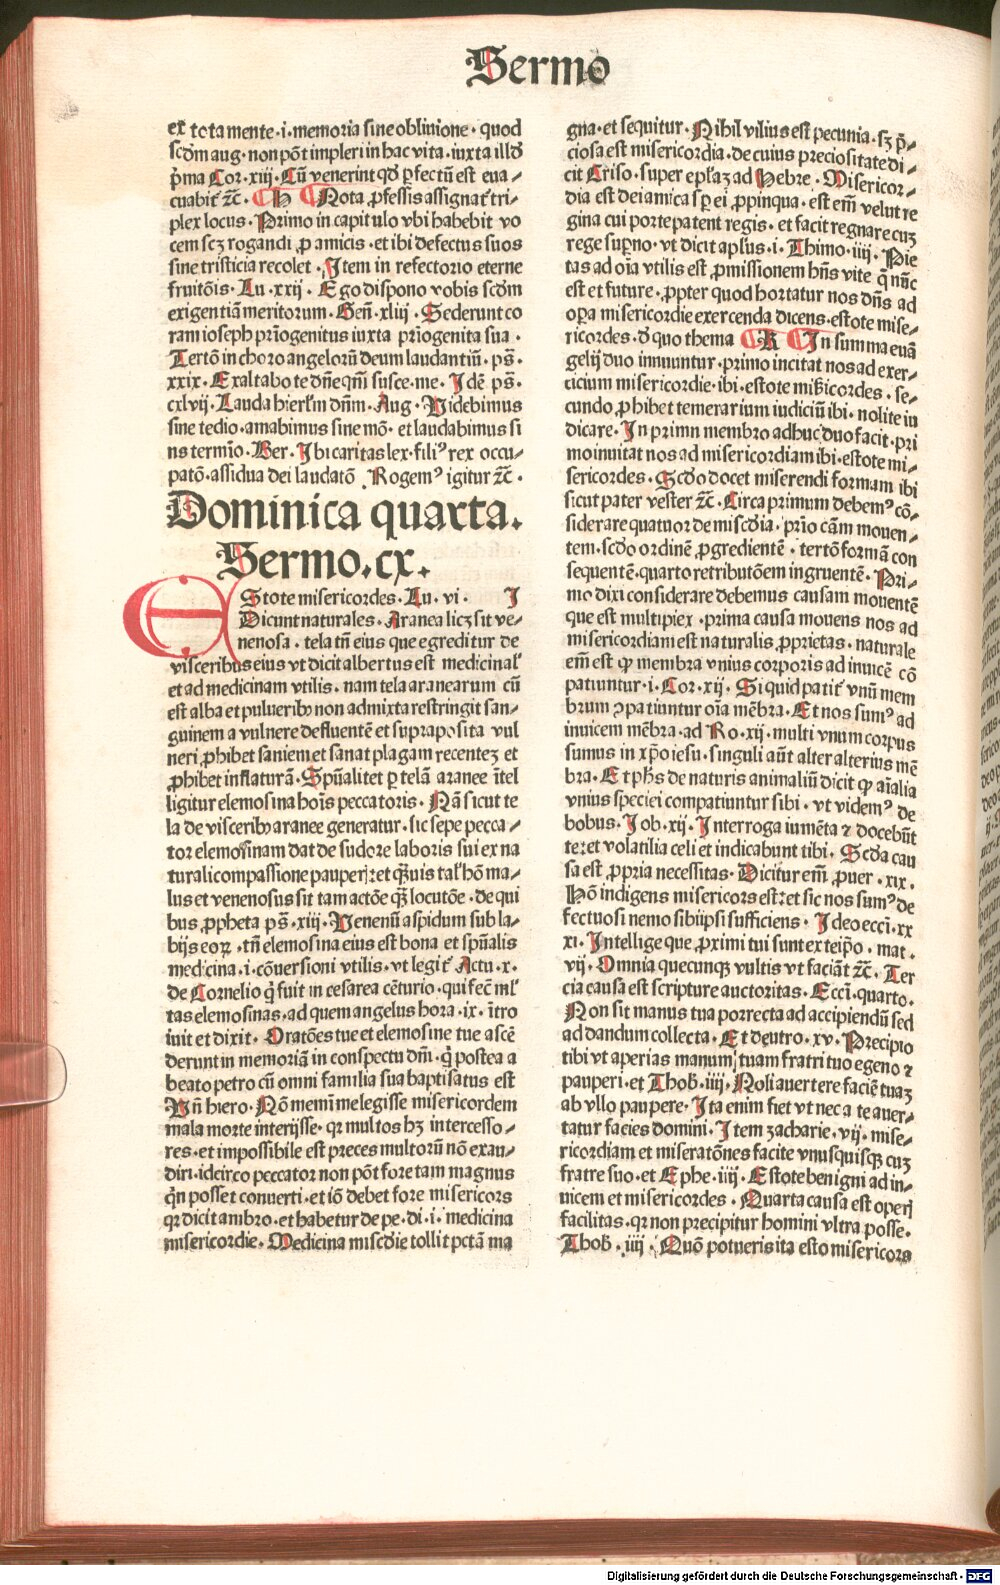 Sermo
ex tota mente·i·memoria sine obliuione·quod
scḋm aug·non põt impleri in hac vita·iuxta illḋ
p̃ma Cor·xiij·Cũ venerint qḋ ꝑfectũ est eua⸗
cuabit̃ ⁊c̃· H Nota ꝓfessis assignat̃ tri⸗
plex locus·Primo in capitulo vbi habebit vo
cem scꝫ rogandi ꝓ amicis·et ibi defectus suos
sine tristicia recolet·Item in refectorio eterne
fruitõis·Lu·xxij·Ego dispono vobis scḋm
exigentiã meritorum·Geñ·xliij·Sederunt co
ram ioseph prĩogenitus iuxta prĩogenita sua·
Tertõ in choro angelorũ deum laudantiũ·ps̃·
xxix·Exaltabo te dñe qñi susce·me·Idẽ ps̃·
cxlvij·Lauda hierl̃m dñm·Aug·Videbimus
sine tedio·amabimus sine mõ·et laudabimus si
ne termĩo·Ber·Ibi caritas lex·filiꝰ rex occu⸗
patõ·assidua dei laudatõ Rogemꝰ igitur ⁊c̃·
Dominica quarta.
Sermo.cx.
EStote misericordes·Lu·vi· I
Dicunt naturales·Aranea licꝫ sit ve⸗
nenosa·tela tñ eius que egreditur de
visceribus eius vt dicit albertus est medicinal̃
et ad medicinam vtilis·nam tela aranearum cũ
est alba et pulueribꝫ non admixta restringit san⸗
guinem a vulnere defluentẽ et supraposita vul
neri ꝓhibet saniem et sanat plagam recenteꝫ et
ꝓhibet inflaturã·Spũalitet ꝑ telã aranee ĩtel
ligitur elemosina hoĩs peccatoris·Nã sicut te
la de visceribꝫ aranee generatur·sic sepe pecca⸗
tor elemosinam dat de sudore laboris sui ex na
turali compassione pauperꝫ:et q̃uis tal̃ hõ ma⸗
lus et venenosus sit tam actõe q̃ꝫ locutõe·de qui
bus ꝓpheta ps̃·xiij·Venenũ aspidum sub la⸗
bijs eoꝝ·tñ elemosina eius est bona et spũalis
medicina·i·cõuersioni vtilis·vt legit̃ Actu·x·
de Cornelio q̃ fuit in cesarea cẽturio·qui fec̃ ml̃
tas elemosinas·ad quem angelus hora·ix·ĩtro
iuit et dixit·Oratões tue et elemosine tue ascẽ
derunt in memoriã in conspectu dñi·q̃ postea a
beato petro cũ omni familia sua baptisatus est
Vñ hiero·Nõ memĩ me legisse misericordem
mala morte interijsse·qꝛ multos hꝫ intercesso⸗
res·et impossibile est preces multorũ nõ exau⸗
diri·idcirco peccator non põt fore tam magnus
q̃n posset conuerti·et iõ debet fore misericors
qꝛ dicit ambro·et habetur de pe·di·i·medicina
misericordie·Medicina misc̃die tollit pctã ma
gna·et sequitur·Nihil vilius est pecunia·sꝫ p̃⸗
ciosa est misericordia·de cuius preciositate di⸗
cit Criso·super epl̃aꝫ ad Hebre·Misericor⸗
dia est dei amica sꝑ ei ꝓpinqua·est em̃ velut re
gina cui porte patent regis·et facit regnare cuꝫ
rege suꝑno·vt dicit apl̃us·i·Thimo·iiij·Pie
tas ad oĩa vtilis est ꝓmissionem hñs vite q̃ nũc
est et future·ꝓpter quod hortatur nos dñs ad
oꝑa misericordie exercenda dicens·estote mise⸗
ricordes·ḋ quo thema K In summa euã
gelij duo innuuntur·primo incitat nos ad exer⸗
cicium misericordie·ibi·estote mĩẽicordes·se⸗
cundo ꝓhibet temerarium iudiciũ ibi·nolite iu
dicare·In primo membro adhuc duo facit·pri
mo inuitat nos ad misericordiam ibi·estote mi⸗
sericordes·Scḋo docet miserendi formam ibi
sicut pater vester ⁊c̃·Circa primum debemꝰ cõ⸗
siderare quatuor de misc̃dia·prĩo cãm mouen⸗
tem·scḋo ordinẽ ꝓgredientẽ·tertõ formã con
sequentẽ·quarto retributõem ingruentẽ·Pri⸗
mo dixi considerare debemus causam mouentẽ
que est multiplex·prima causa mouens nos ad
misericordiam est naturalis ꝓprietas·naturale
em̃ est ꝙ membra vnius corporis ad inuicẽ cõ
patiuntur·i·Cor·xij·Si quid patit̃ vnũ mem
brum ꝯpatiuntur oĩa mẽbra·Et nos sumꝰ ad
inuicem mẽbra·ad Ro·xij·multi vnum corpus
sumus in xp̃o iesu·singuli aũt alter alterius mẽ
bra·Et phs̃ de naturis animaliũ dicit ꝙ aĩalia
vnius speciei compatiuntur sibi·vt videmꝰ de
bobus·Job·xij·Interroga iumẽta ⁊ docebũt
te:et volatilia celi et indicabunt tibi·Scḋa cau
sa est ꝓpria necessitas·Dicitur em̃ ꝓuer·xix·
Hõ indigens misericors est:et sic nos sumꝰ de
fectuosi nemo sibiipsi sufficiens·Ideo ecci·xx
xi·Intellige que ꝓximi tui sunt ex teip̃o·mat·
vij·Omnia quecunqꝫ vultis vt faciãt ⁊c̃·Ter
cia causa est scripture auctoritas·Ecci·quarto·
Non sit manus tua porrecta ad accipiendũ sed
ad dandum collecta·Et deutro·xv·Precipio
tibi vt aperias manum tuam fratri tuo egeno ⁊
pauperi·et Thob·iiij·Noli auertere faciẽ tuaꝫ
ab vllo paupere·Ita enim fiet vt nec a te auer⸗
tatur facies domini·Item zacharie·vij·mise⸗
ricordiam et miseratões facite vnusquisqꝫ cuꝫ
fratre suo·et Ephe·iiij·Estote benigni ad in⸗
uicem et misericordes·Quarta causa est operꝫ
facilitas·qꝛ non precipitur homini vltra posse·
Thob·iiij·Quõ potueris ita esto misericors
Digitalisierung gefördert durch die Deutsche Forschungsgemeinschaft - DFG